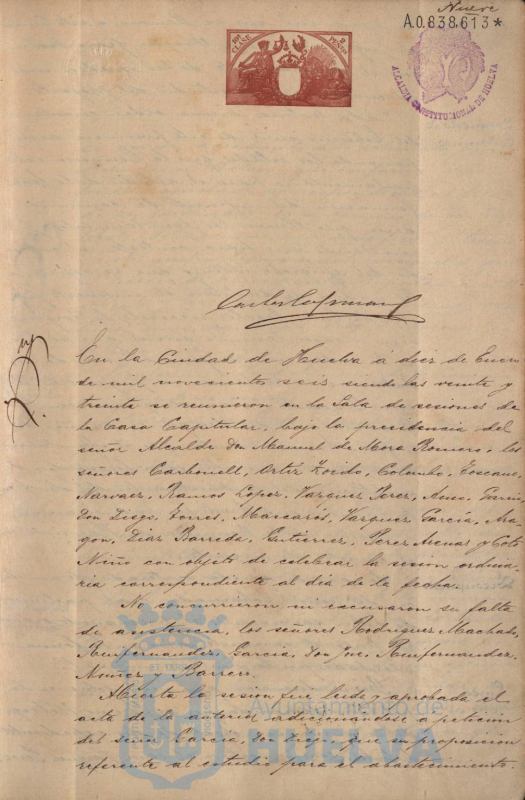 Nueve
A.0.838.613*
11ª CLASE
2 PESETAS
ALCALDIA CONSTITUCIONAL DE HUELVA
En la Ciudad de Huelva á diez de Enero
de mil novecientos seis, siendo las veinte y
treinta se reunieron en la Sala de sesiones de
la Casa Capitular, bajo la presidencia del
señor Alcalde Don Manuel de Mora Romero, los
señores Carbonell, Ortiz Zocido, Colombo, Toscano,
Narvaez, Ramos Lopez, Vazquez Perez, Muso, Garcia
Don Diego, Torres, Mascarós, Vazquez García, Ara-
gon, Diaz Barreda, Gutierrez, Perez Asenar y Coto
Niño con objeto de celebrar la sesión ordina-
ria correspondiente al dia de la fecha.
No concurrieron ni excusaron su falta
de asistencia, los señores Rodriguez Machado,
Renfernandez, Garcia, Don José, Renfernandez,
Nuñez y Barrera.
Abierta la sesión fué leida y aprobada el
acta de la anterior adicionandose á petición
del señor Garcia Don Diego que su proposición
referente al estudio para el abastecimiento.
Ayuntamiento de
HUELVA